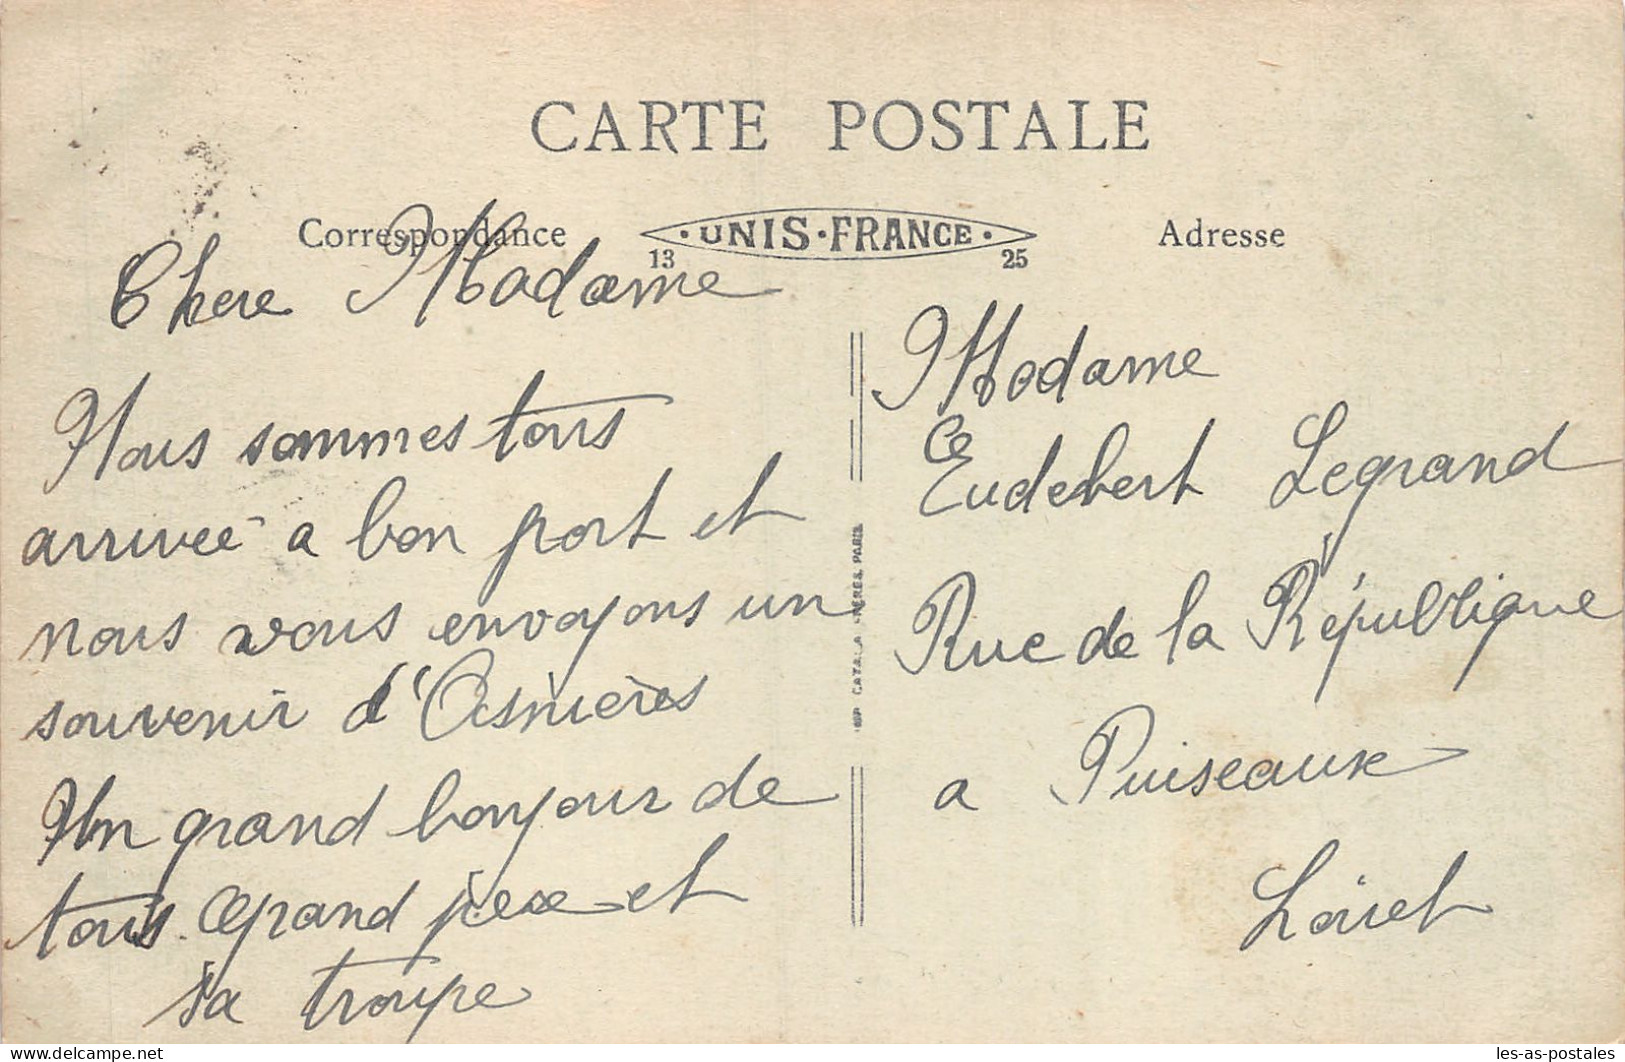 CARTE POSTALE
Correspondance
UNIS-FRANCE
13 25
Adresse
Chere Madame
Nous sommes tous
arrivée a bon port et
nous vous envoyons un
souvenir d'Asnières
Un grand bonjour de
tous Grand pere et
sa troupe
IMP. CATALA FRÈRES, PARIS
Madame
Eudebert Legrand
Rue de la République
a Puiseaux
Loiret
delcampe.net
les-as-postales